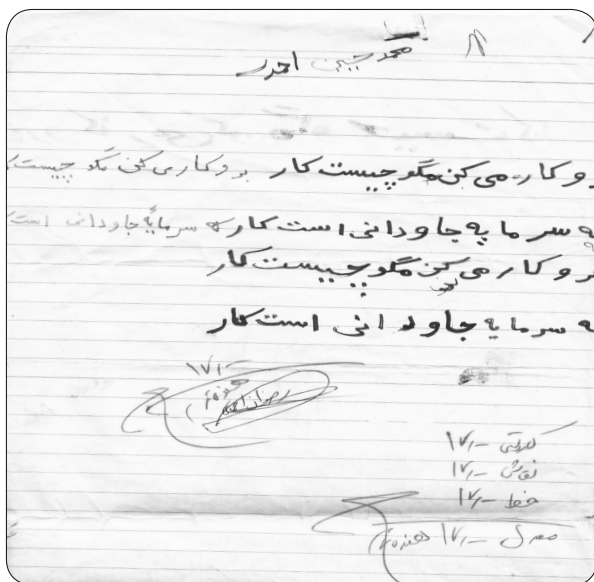 محمد حسین احمد
رو کار می کن مگو چیست کار برو کار می کن مگو چیست
که سرمایه جاودانی است کار که سرمایه جاودانی است
برو کار می کن مگو چیست کار
که سرمایه جاودانی است کار
۱۷/-
۱۷/-
نقاشی ۱۷/-
خط ۱۷/-
معدل ۱۷/- هفده